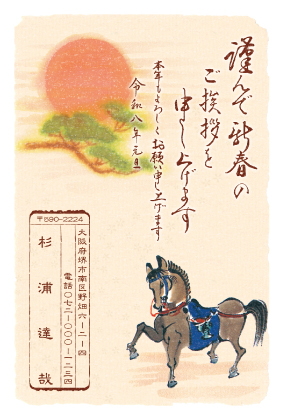 謹んで新春の
ご挨拶を
申し上げます
本年もよろしくお願い申し上げます
令和八年元旦
〒590-2224
大阪府堺市南区野畑六ー二ー四
電話〇七二ー〇〇〇ー一二三四
杉浦達哉